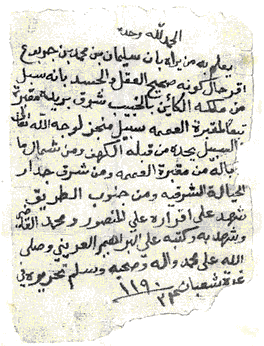 الحمد لله وحده
يعلم به من يراه بان سليمان بن محمد بن جويبر
اقر حال كونه صحيح العقل والجسد بانه سبل
من ملكه الكائن بالخبيب شرق بريدة مقبرة
تبعا لمقبرة العممه سبيل منجز لوجه الله تعالى
السبيل يحده من قبله الكهف ومن شمال ما
ماله من مقبرة العممه ومن شرق جدار
الحيالة الشرقيه ومن جنوب الطريق
شهد على اقراره علي المنصور ومحمد
وشهد به وكتبه علي البراهيم العريني وصلى
الله على محمد واله وصحبه وسلم تحريره في
غرة شعبان ١١٩٠